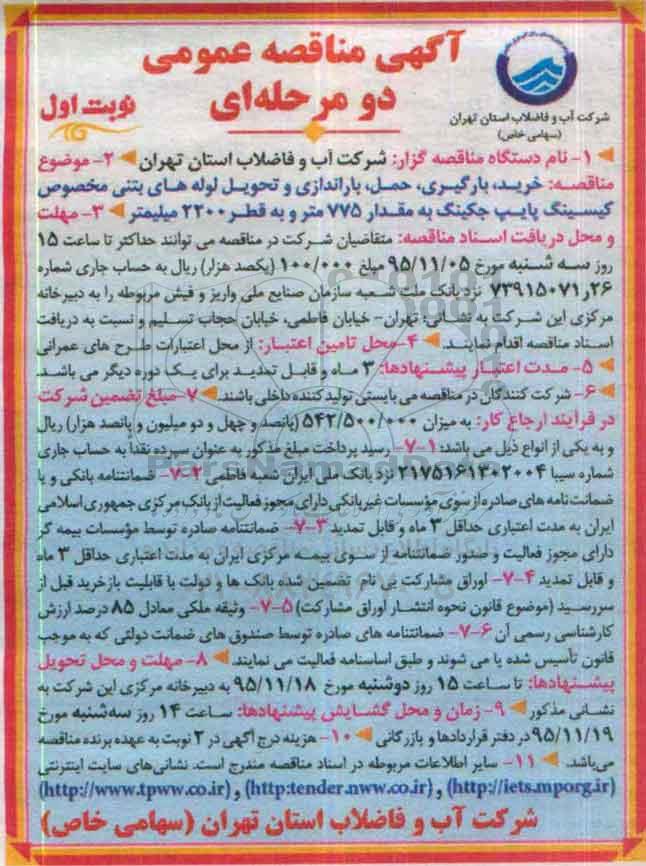 آگهی مناقصه عمومی
دو مرحله‌ای
نوبت اول
شرکت آب و فاضلاب استان تهران
(سهامی خاص)
۱- نام دستگاه مناقصه گزار: شرکت آب و فاضلاب استان تهران ۲- موضوع
مناقصه: خرید، بارگیری، حمل، باراندازی و تحویل لوله های بتنی مخصوص
کیسینگ پایپ جکینگ به مقدار ۷۷۵ متر و به قطر ۲۲۰۰ میلیمتر ۳- مهلت
و محل دریافت اسناد مناقصه: متقاضیان شرکت در مناقصه می توانند حداکثر تا ساعت ۱۵
روز سه شنبه مورخ ۹۵/۱۱/۰۵ مبلغ ۱۰۰/۰۰۰ (یکصد هزار) ریال به حساب جاری شماره
۷۳۹۱۵۰۷۱ر۲۶ نزد بانک ملت شعبه سازمان صنایع ملی واریز و فیش مربوطه را به دبیرخانه
مرکزی این شرکت به نشانی: تهران- خیابان فاطمی، خیابان حجاب تسلیم و نسبت به دریافت
اسناد مناقصه اقدام نمایند. ۴-محل تامین اعتبار: از محل اعتبارات طرح های عمرانی
۵- مدت اعتبار پیشنهادها: ۳ ماه و قابل تمدید برای یک دوره دیگر می باشد.
۶- شرکت کنندگان در مناقصه می بایستی تولید کننده داخلی باشند. ۷-مبلغ تضمین شرکت
در فرآیند ارجاع کار: به میزان ۵۴۲/۵۰۰/۰۰۰ (پانصد و چهل و دو میلیون و پانصد هزار) ریال
و به یکی از انواع ذیل می باشد: ۷-۱- رسید پرداخت مبلغ مذکور به عنوان سپرده نقدا به حساب جاری
شماره سیبا ۲۱۷۵۱۶۱۳۰۲۰۰۴ نزد بانک ملی ایران شعبه فاطمی ۷-۲- ضمانتنامه بانکی و یا
ضمانت نامه های صادره از سوی مؤسسات غیربانکی دارای مجوز فعالیت از بانک مرکزی جمهوری اسلامی
ایران به مدت اعتباری حداقل ۳ ماه و قابل تمدید ۷-۳- ضمانتنامه صادره توسط مؤسسات بیمه گر
دارای مجوز فعالیت و صدور ضمانتنامه از سوی بیمه مرکزی ایران به مدت اعتباری حداقل ۳ ماه
و قابل تمدید ۷-۴- اوراق مشارکت بی نام تضمین شده بانک ها و دولت با قابلیت بازخرید قبل از
سررسید (موضوع قانون نحوه انتشار اوراق مشارکت) ۷-۵- وثیقه ملکی معادل ۸۵ درصد ارزش
کارشناسی رسمی آن ۷-۶- ضمانتنامه های صادره توسط صندوق های ضمانت دولتی که به موجب
قانون تأسیس شده یا می شوند و طبق اساسنامه فعالیت می نمایند. ۸- مهلت و محل تحویل
پیشنهادها: تا ساعت ۱۵ روز دوشنبه مورخ ۹۵/۱۱/۱۸ به دبیرخانه مرکزی این شرکت به
نشانی مذکور ۹- زمان و محل گشایش پیشنهادها: ساعت ۱۴ روز سه‌شنبه مورخ
۹۵/۱۱/۱۹ در دفتر قراردادها و بازرگانی ۱۰- هزینه درج آگهی در ۲ نوبت به عهده برنده مناقصه
می‌باشد. ۱۱- سایر اطلاعات مربوطه در اسناد مناقصه مندرج است. نشانی‌های سایت اینترنتی
(http://iets.mporg.ir) و (http:tender.nww.co.ir) و (http://www.tpww.co.ir)
شرکت آب و فاضلاب استان تهران (سهامی خاص)